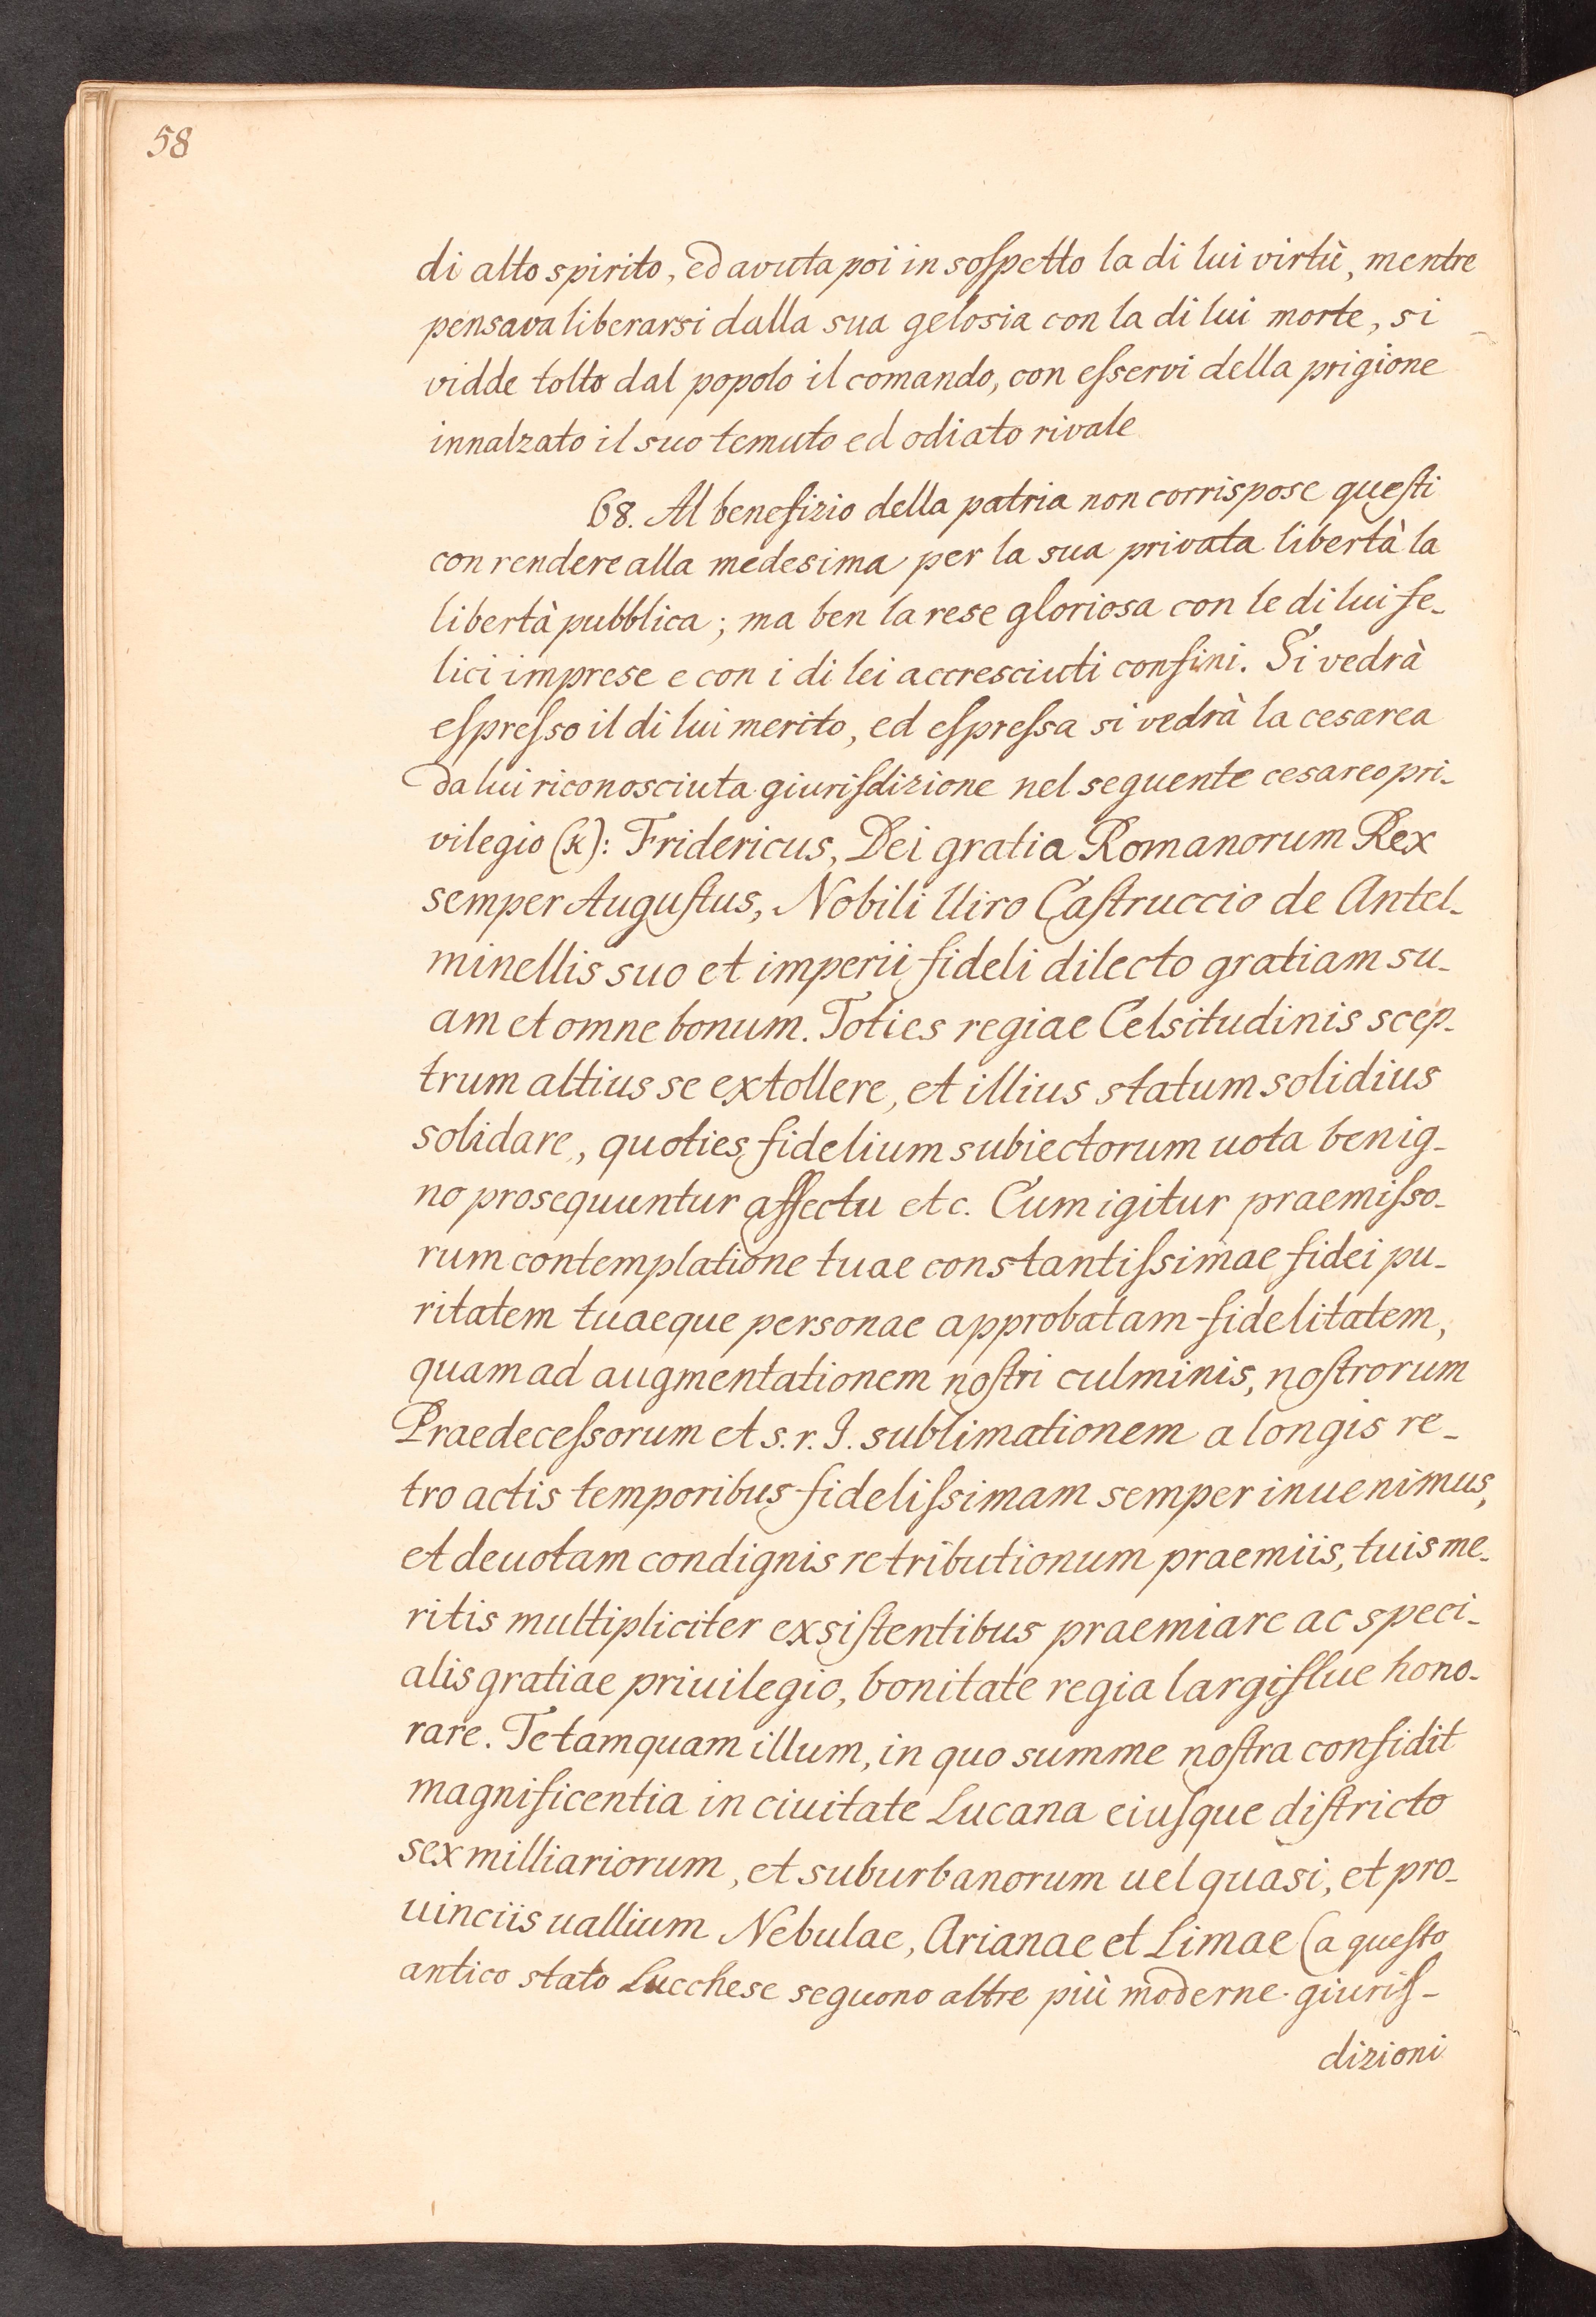 58
di alto spirito, ed avuta poi in sospetto la di lui virtù, mentre
pensava liberarsi dalla sua gelosia con la di lui morte, si
vidde tolto dal popolo il comando, con esservi della prigione
innalzato il suo temuto ed odiato rivale
68. Al benefizio della patria non corrispose questi
con rendere alla medesima per la sua privata libertà la
libertà pubblica; ma ben la rese gloriosa con le di lui fe-
lici imprese e con i di lei accresciuti confini. Si vedrà
espresso il di lui merito, ed espressa si vedrà la cesarea
da lui riconosciuta giurisdizione nel seguente cesareo pri-
vilegio (k): Fridericus, Dei gratia Romanorum Rex
semper Augustus, Nobili Uiro Castruccio de Antel-
minellis suo et imperii fideli dilecto gratiam su-
am et omne bonum. Toties regiae Celsitudinis scep-
trum altius se extollere, et illius statum solidius
solidare, quoties fidelium subiectorum uota benig-
no prosequuntur affectu etc. Cum igitur praemisso-
rum contemplatione tuae constantissimae fidei pu-
ritatem tuaeque personae approbatam fidelitatem,
quam ad augmentationem nostri culminis, nostrorum
Praedecessorum et s. r. I. sublimationem a longis re-
tro actis temporibus fidelissimam semper inuenimus,
et deuotam condignis retributionum praemiis, tuis me-
ritis multipliciter exsistentibus praemiare ac speci-
alis gratiae priuilegio, bonitate regia largiflue hono-
rare. Te tamquam illum, in quo summe nostra confidit
magnificentia in ciuitate Lucana eiusque districto
sex milliariorum, et suburbanorum uel quasi, et pro-
uinciis uallium Nebulae, Arianae et Limae (a questo
antico stato Lucchese seguono altre più moderne giuris-
dizioni